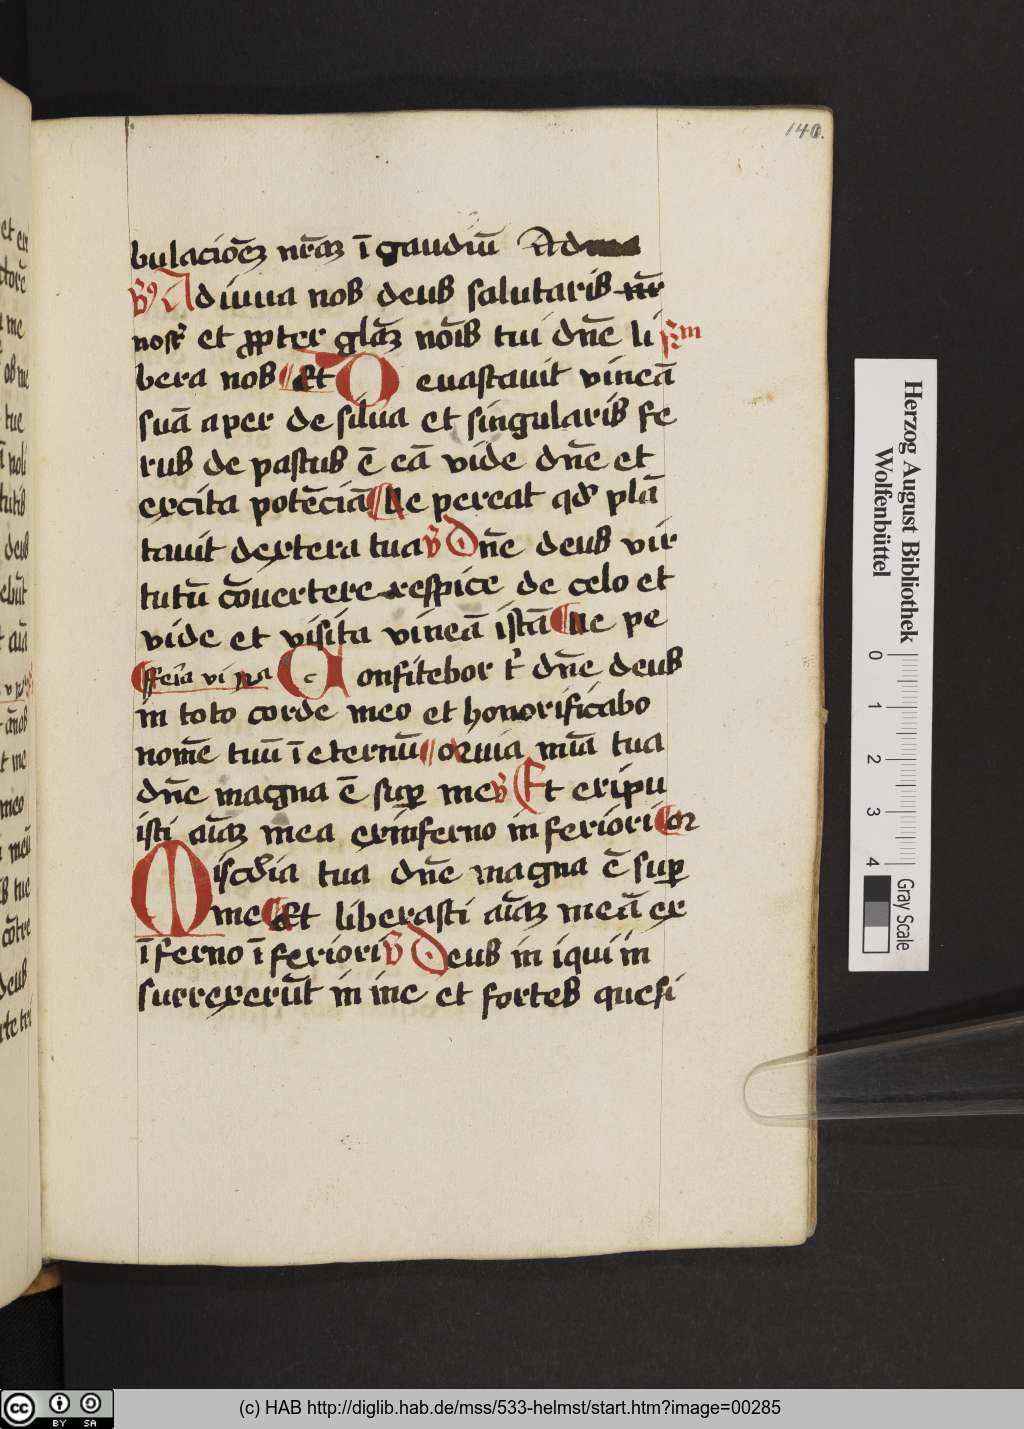 140.
bulacio͞ez nr͞az ī gaudiū Ad
v̄ꝰ Adiuua nos deus salutaris nr̄
nost͛ et ꝓpter gl͞az nōis tui dn̄e li
bera nos Et Deuastauit vineā r̄m
suā aper de silua et singularis fe
rus de pastus ē eā vide dn̄e et
excita potēciā Ne pereat qd͛ plā
tauit dextera tua v̄ Dn̄e deus vir
tutū cōuertere respice de celo et
vide et visita vineā istā Ne pe
fferīa vi na Confitebor t͛ dn̄e deus
in toto corde meo et honorificabo
nomē tuū ī eternū Qr̄uia mīa tua
dn̄e magna ē suꝑ me v̄ Et eripu
isti aīaz mea exinferno inferiori Qr
Misc͛dia tua dn̄e magna ē suꝑ
me Et liberasti aīaz meā ex
īferno īferiori v̄ Deus in iqui in
surrexerūt in me et fortes quesi
Herzog August Bibliothek
Wolfenbüttel
0 1 2 3 4
Gray Scale
cc BY SA
(c) HAB http://diglib.hab.de/mss/533-helmst/start.htm?image=00285